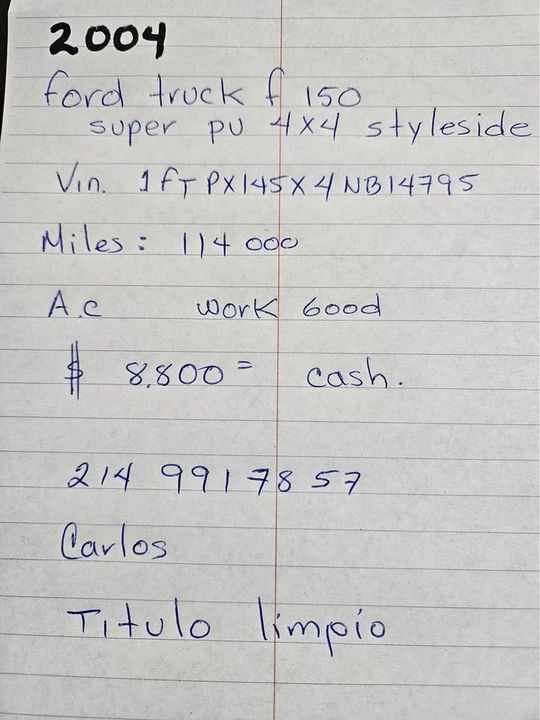 2004
ford truck f 150
super pu 4X4 styleside
Vin. 1fTPX145X4NB14795
Miles: 114 000
A.c work Good
$ 8,800= cash.
214 991 78 57
Carlos
Titulo limpio